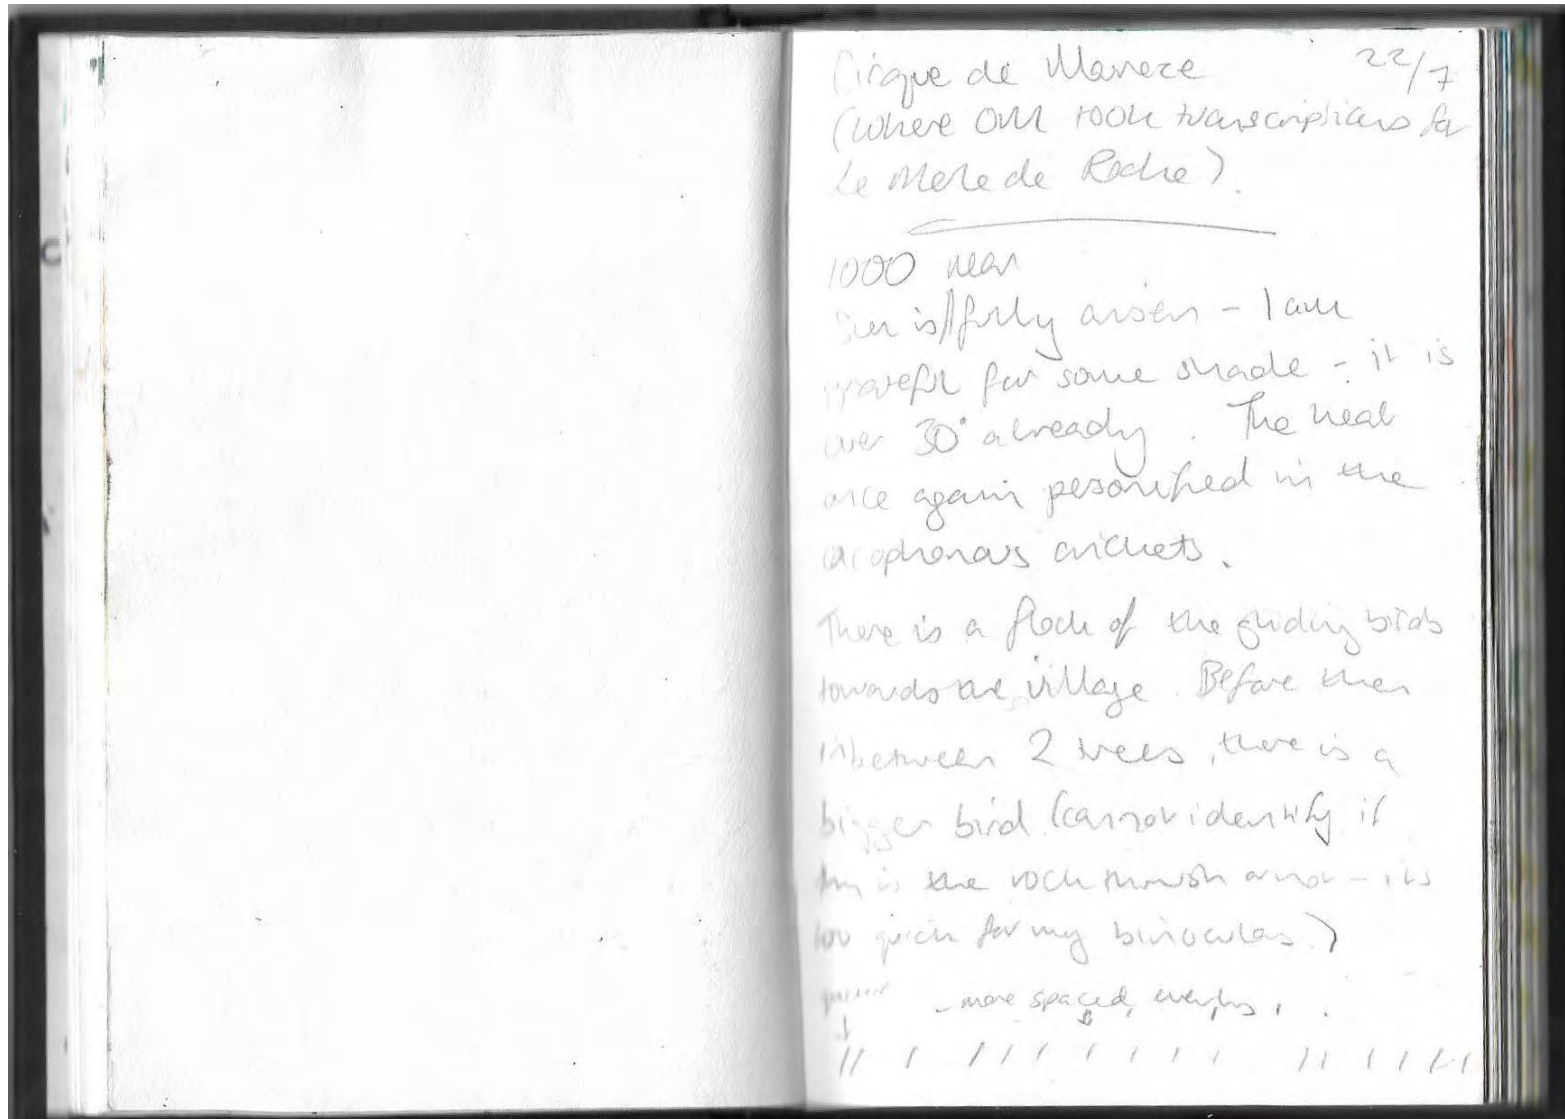 Cirque de Mareze 22/7
(where OM took transcriptions for
Le Merle de Roche).
1000
Sun is fully arisen - I am
grateful for some shade - it is
over 30° already. The heat
once again personified in the
cacophonous crickets.
There is a flock of the gliding birds
towards the village. Before then
inbetween 2 trees, there is a
bigger bird (cannot identify if
this is the rock thrush or not - its
too quick for my binoculars.)
- more spaced,